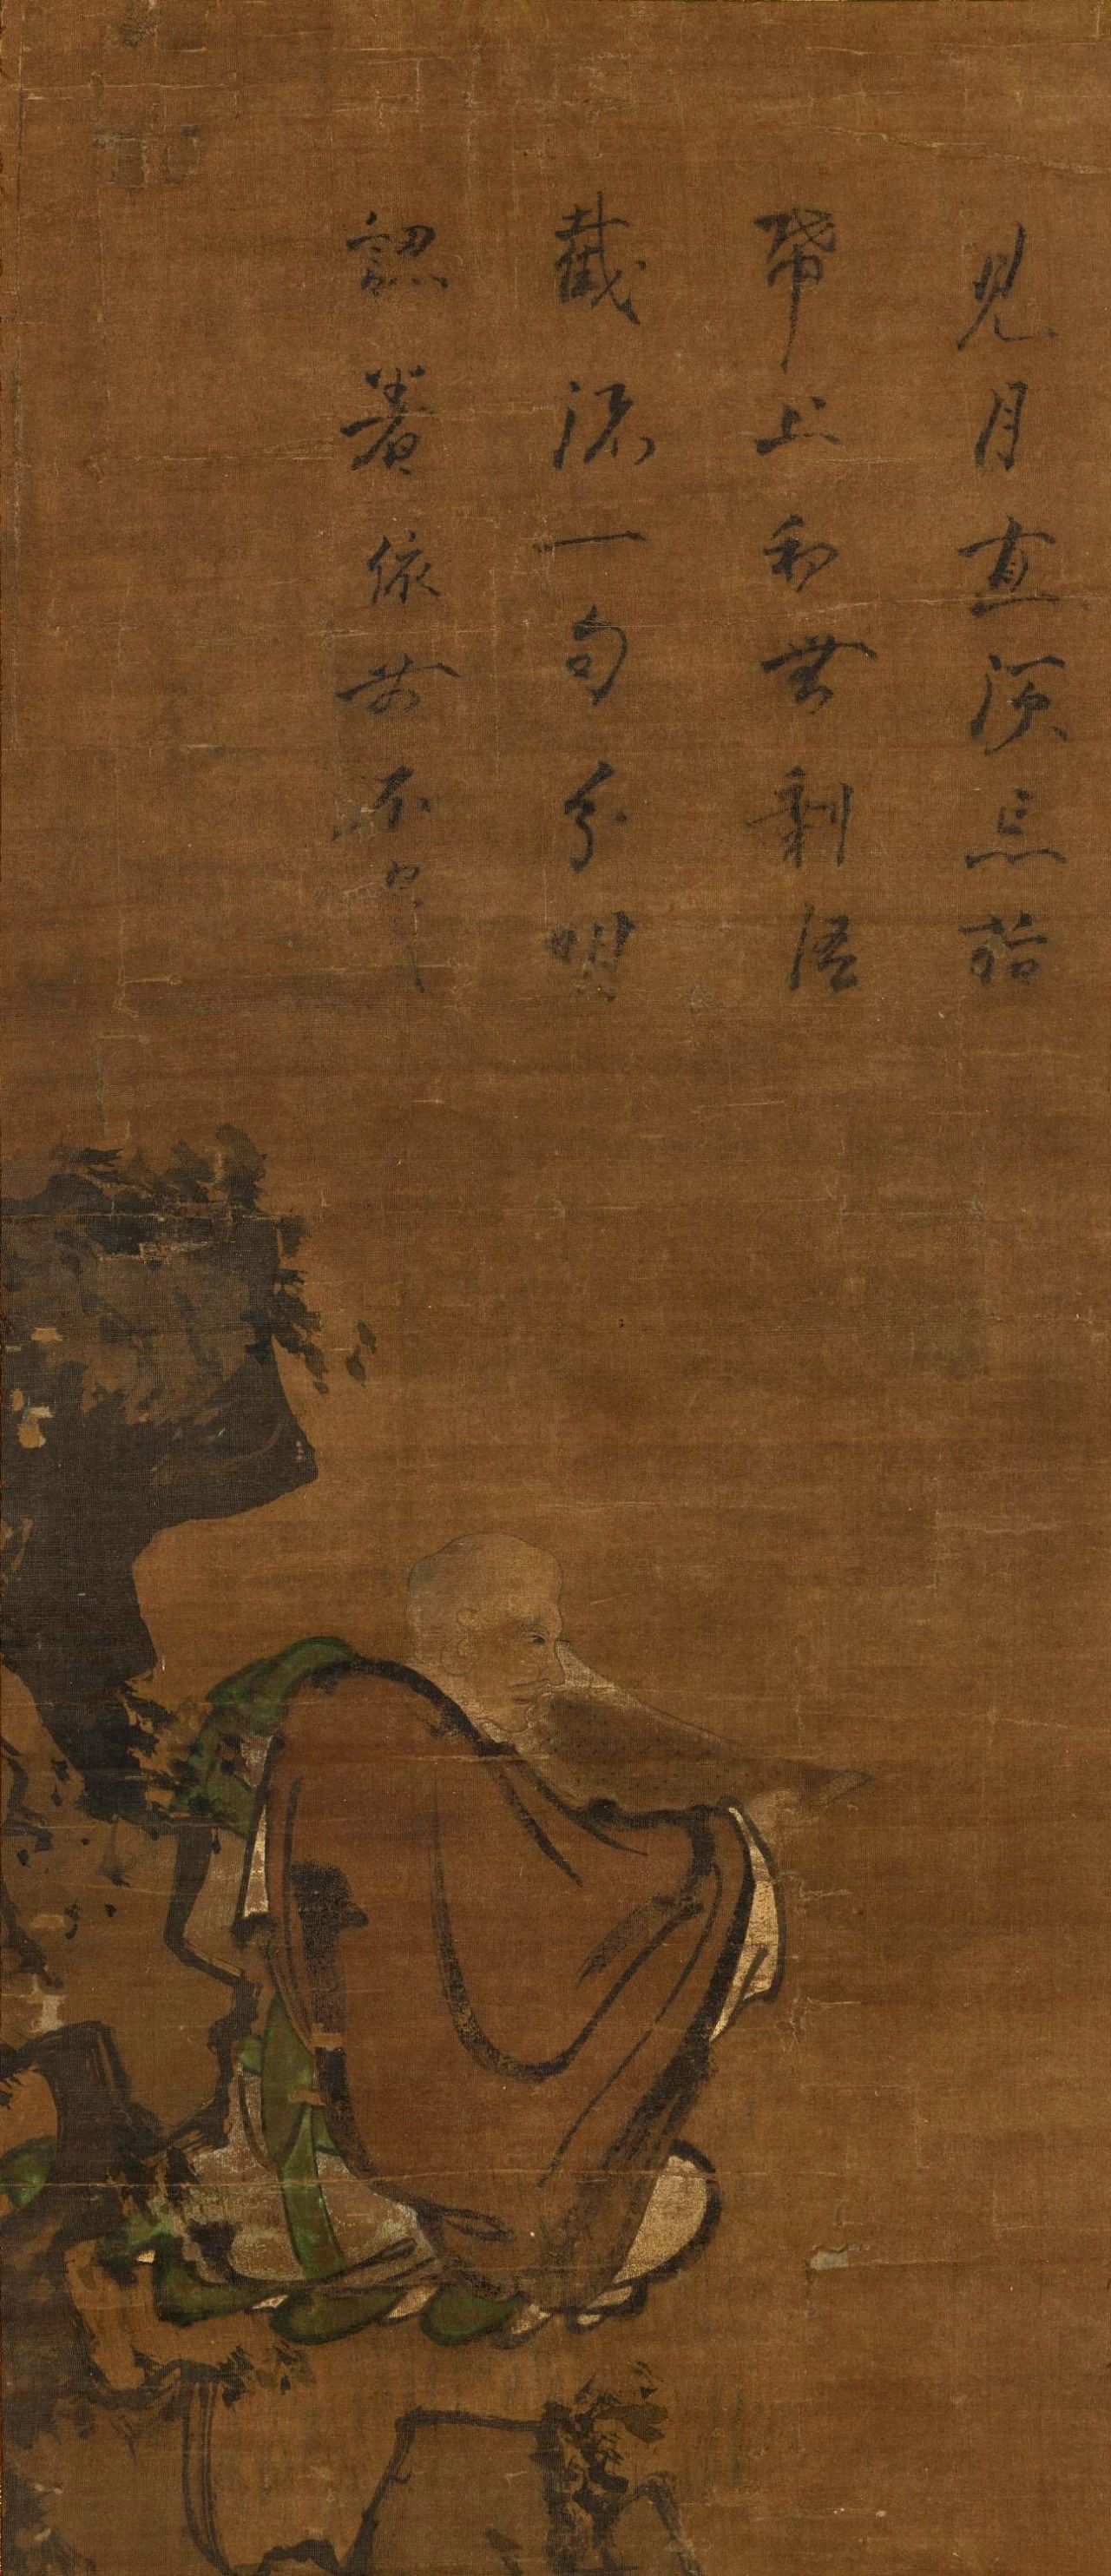 見月直須忘指
帋上初無剩語
截流一句分明
認著依前不是